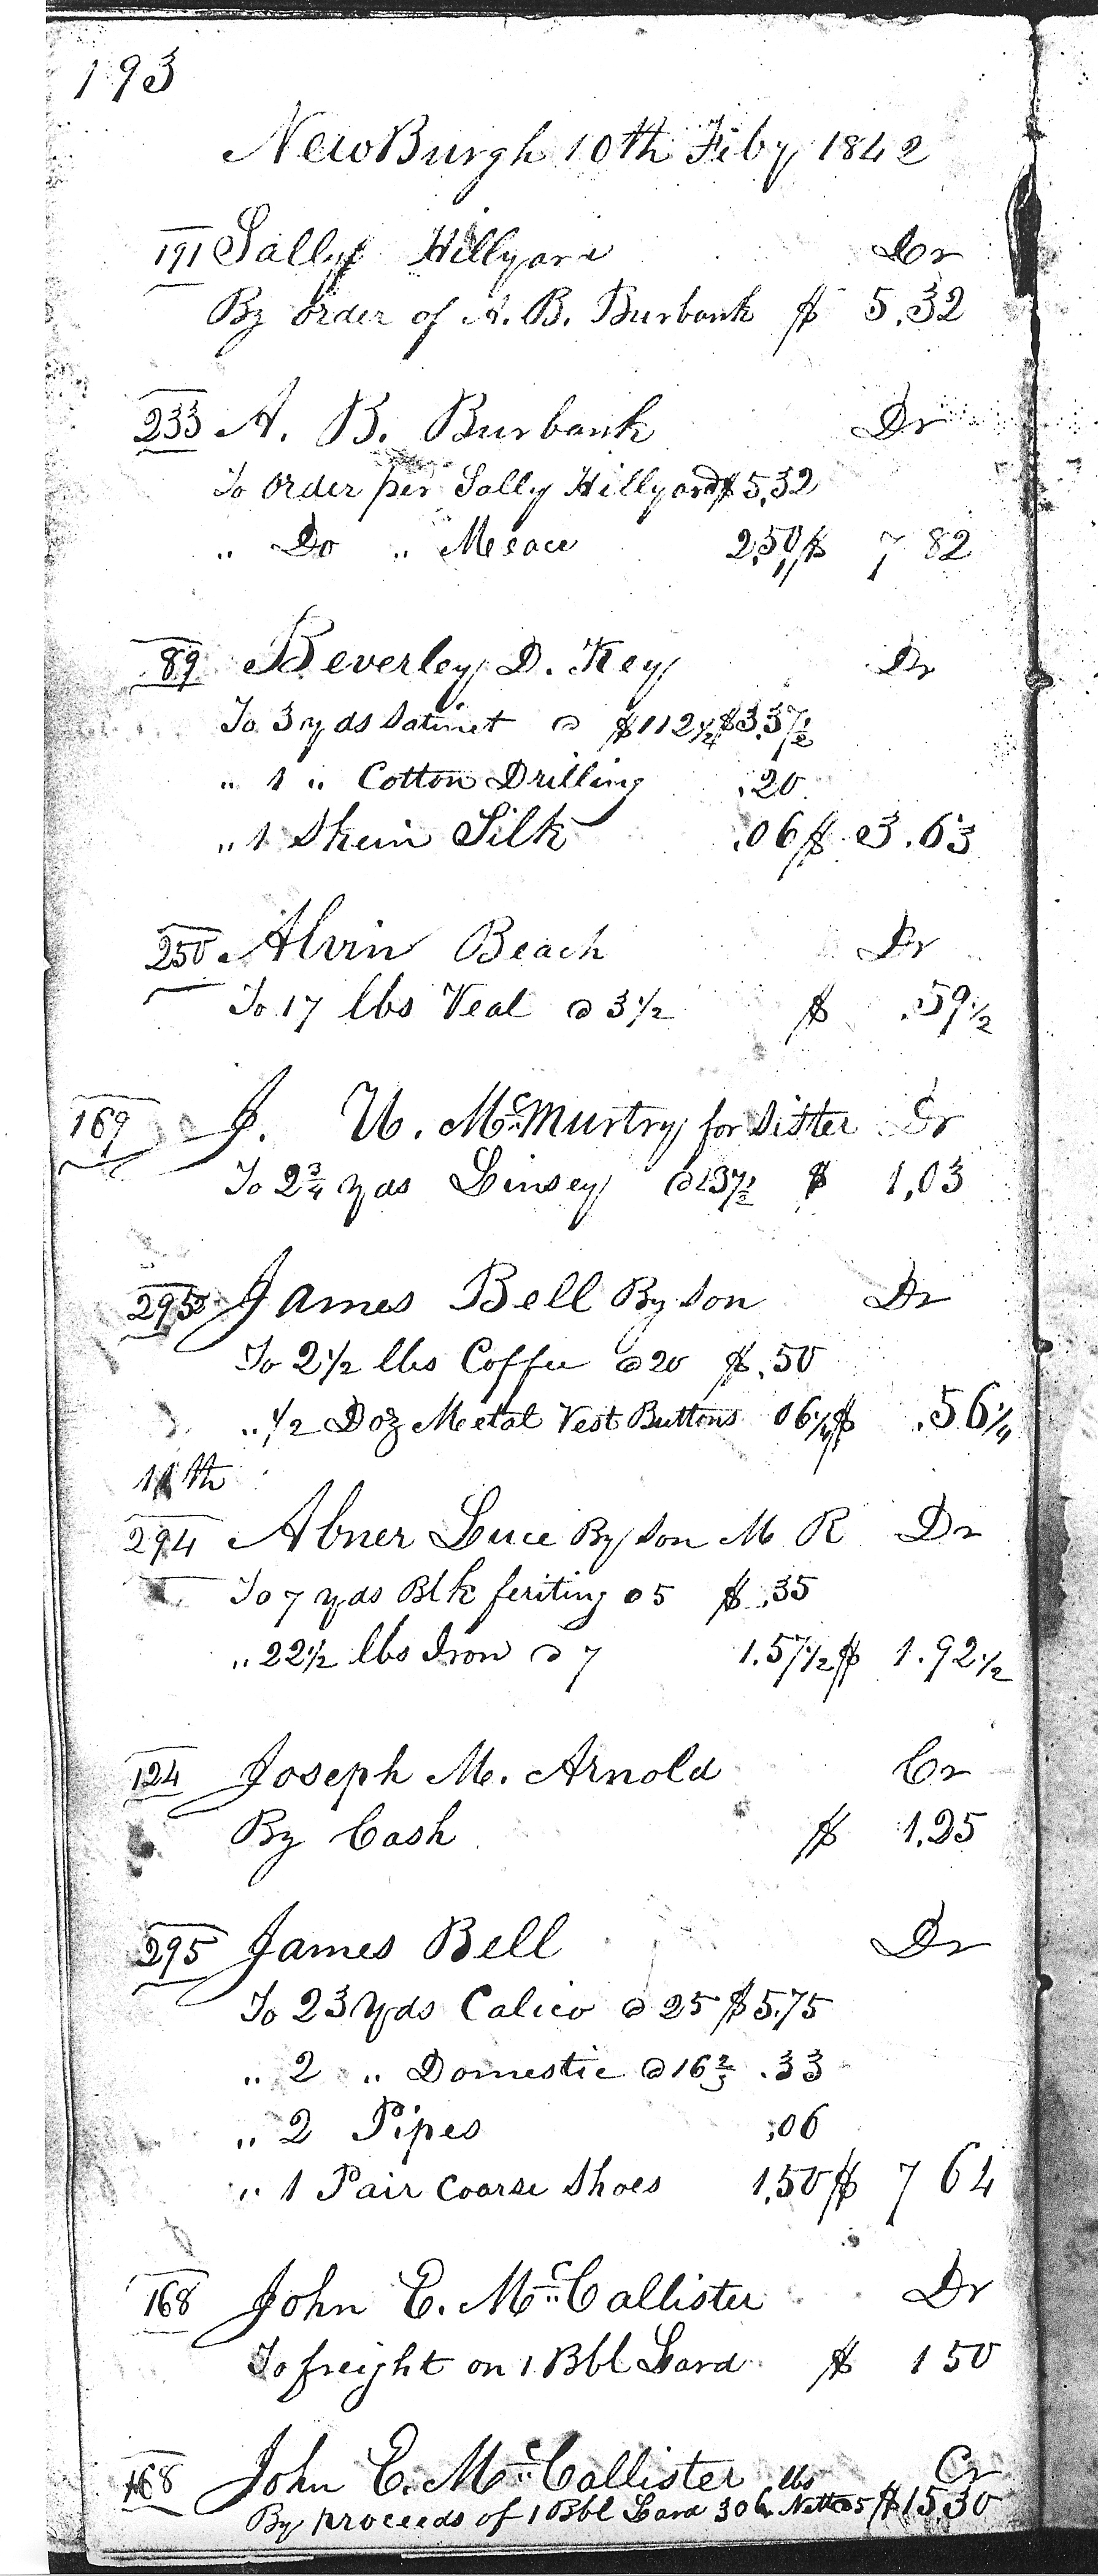 193
NewBurgh 10th Feby 1842
191 Sally Hillyard Cr
By order of A. B. Burbank $ 5.32
233 A. B. Burbank Dr
To order per Sally Hillyard $5.32
" Do " 2.50 $ 7 82
89 Beverley D. Key Dr
To 3 yds Satinet @ $1 12 1/2 $3.37 1/2
" 1 " Cotton Drilling .20
" 1 Skein Silk .06 $ 3.63
250 Alvin Beach Dr
To 17 lbs Veal @ 3 1/2 $ .59 1/2
169 J. W. McMurtry for Sister Dr
To 2 3/4 yds Linsey @ 37 1/2 $ 1,03
295 James Bell By Son Dr
To 2 1/2 lbs Coffee @ 20 $ .50
" 1/2 Doz Metal Vest Buttons 06 1/4 $ .56 1/4
11th
294 Abner Luce By Son M R Dr
To 7 yds Blk feriting @ 5 $ .35
" 22 1/2 lbs Iron @ 7 1.57 1/2 $ 1.92 1/2
124 Joseph M. Arnold Cr
By Cash $ 1,25
295 James Bell Dr
To 23 Yds Calico @ 25 $5.75
" 2 " Domestic @ 16 2/3 .33
" 2 Pipes .06
" 1 Pair Coarse Shoes 1,50 $ 7 64
168 John E. McCallister Dr
To freight on 1 Bbl Lard $ 1 50
168 John E. McCallister Cr
By proceeds of 1 Bbl Lard 306 lbs Nett @ 5 $15.30